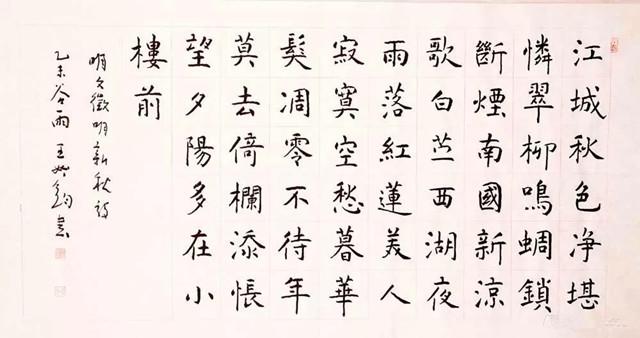 江城秋色净堪
憐翠柳鳴蜩鎖
斷煙南國新涼
歌白苎西湖夜
雨落紅蓮美人
寂寞空愁暮華
髮凋零不待年
莫去倚欄添悵
望夕陽多在小
樓前
明文徵明新秋詩
乙未谷雨王書